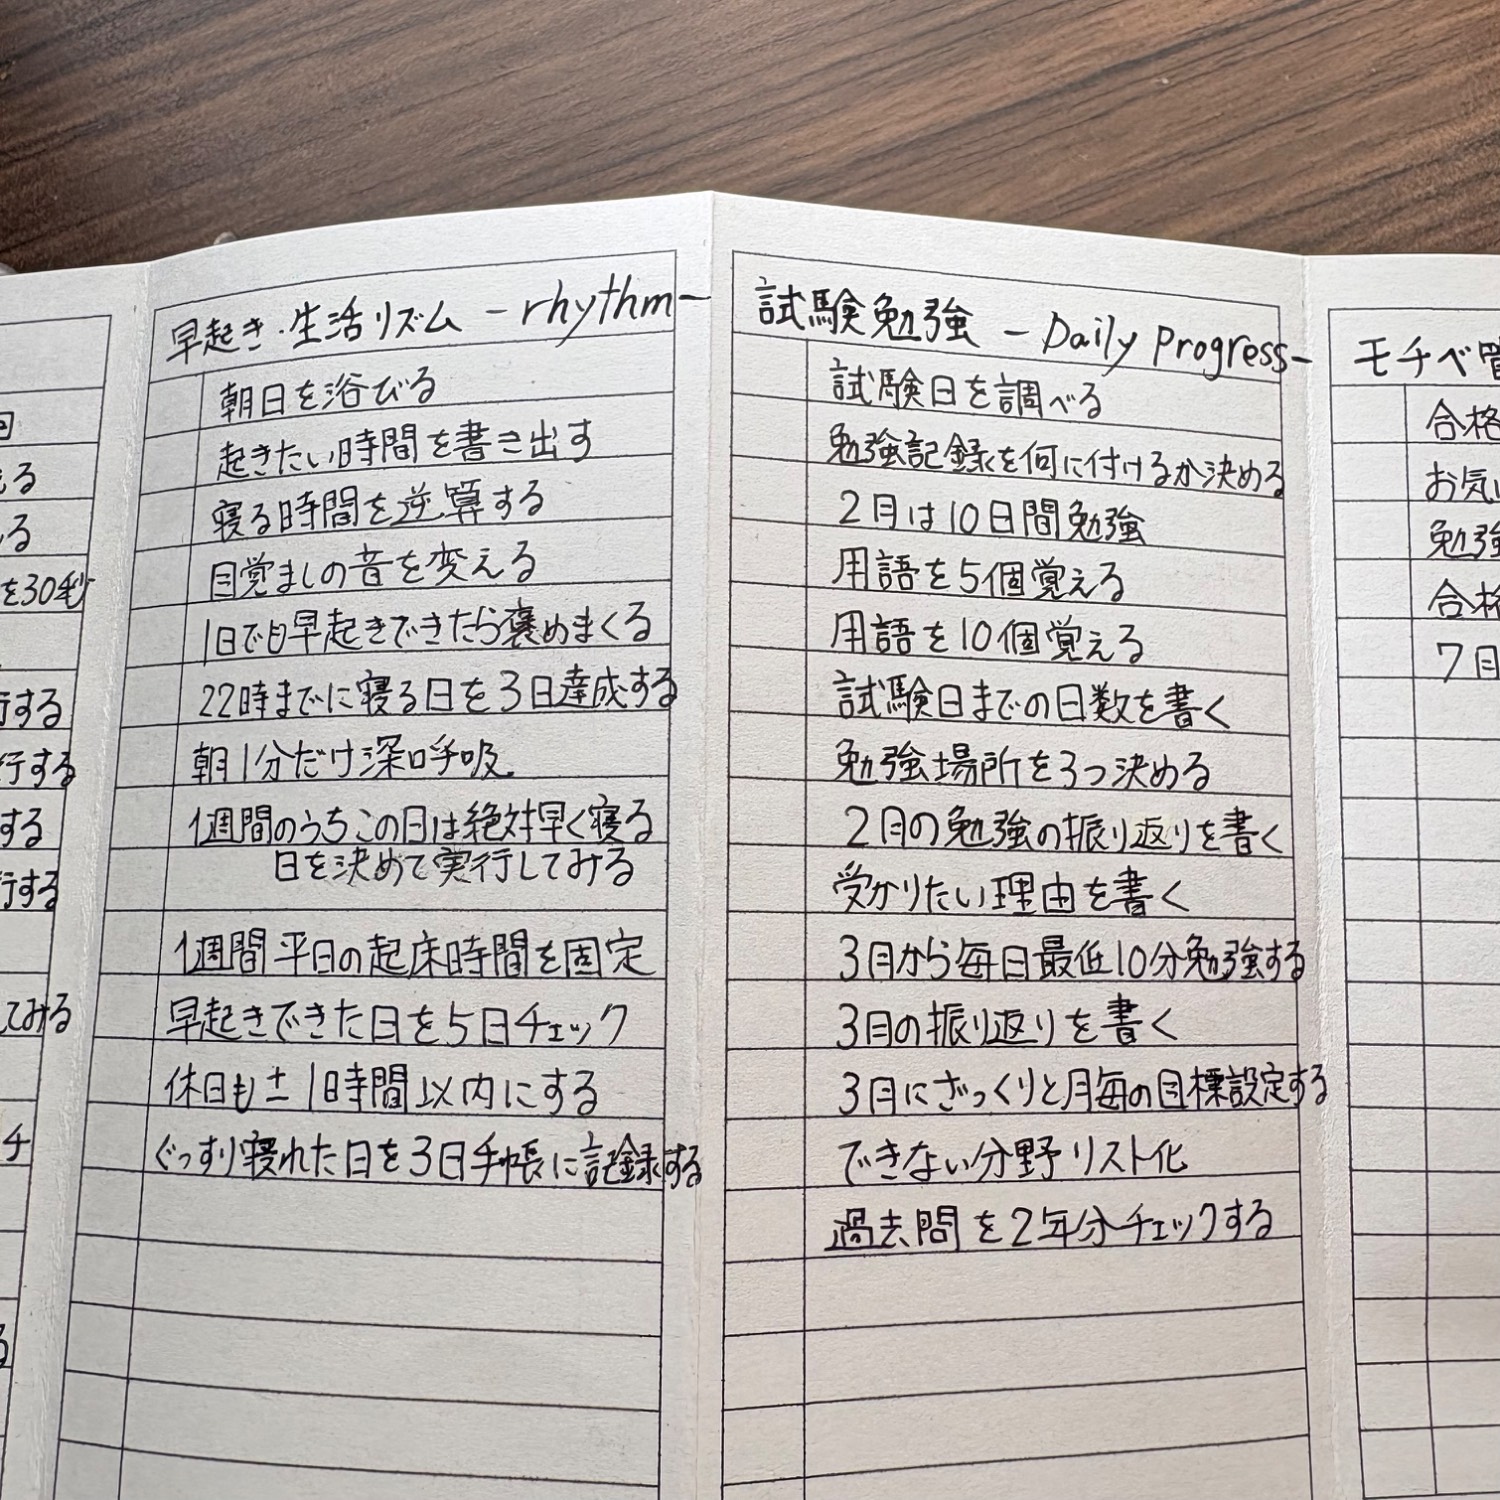 る
る
を30秒
行する
行する
する
行する
してみる
チ
る
早起き・生活リズム -rhythm-
朝日を浴びる
起きたい時間を書き出す
寝る時間を逆算する
目覚ましの音を変える
1日でも早起きできたら褒めまくる
22時までに寝る日を3日達成する
朝1分だけ深呼吸
1週間のうちこの日は絶対早く寝る
日を決めて実行してみる
1週間平日の起床時間を固定
早起きできた日を5日チェック
休日も±1時間以内にする
ぐっすり寝れた日を3日手帳に記録する
試験勉強 -Daily Progress-
試験日を調べる
勉強記録を何に付けるか決める
2月は10日間勉強
用語を5個覚える
用語を10個覚える
試験日までの日数を書く
勉強場所を3つ決める
2月の勉強の振り返りを書く
受かりたい理由を書く
3月から毎日最低10分勉強する
3月の振り返りを書く
3月にざっくりと月毎の目標設定する
できない分野リスト化
過去問を2年分チェックする
モチベ
合格
お気
勉強
合格
7月